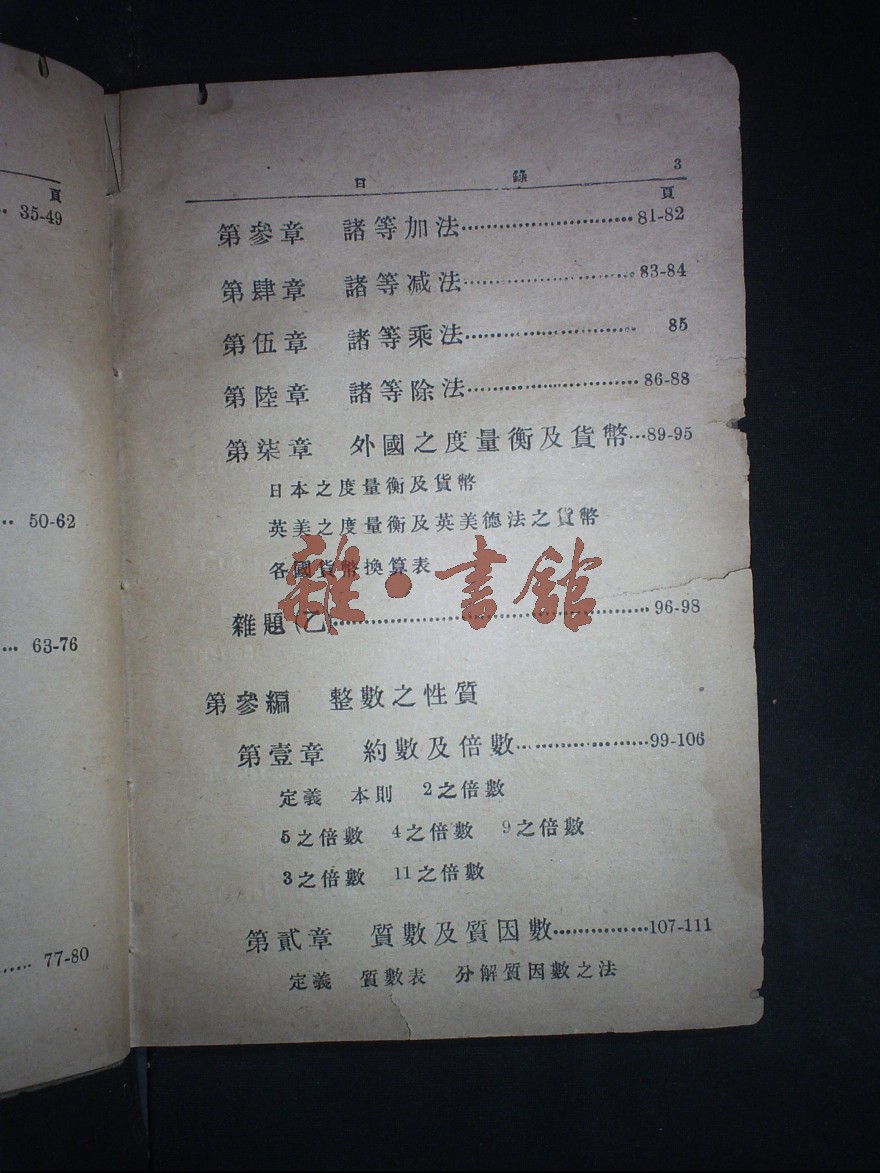 頁
35-49
50-62
63-76
77-80
目錄 3
頁
第參章 諸等加法 81-82
第肆章 諸等減法 83-84
第伍章 諸等乘法 85
第陸章 諸等除法 86-88
第柒章 外國之度量衡及貨幣 89-95
日本之度量衡及貨幣
英美之度量衡及英美德法之貨幣
各國貨幣換算表
雜·書館
雜題(乙) 96-98
第參編 整數之性質
第壹章 約數及倍數 99-106
定義 本則 2之倍數
5之倍數 4之倍數 9之倍數
3之倍數 11之倍數
第貳章 質數及質因數 107-111
定義 質數表 分解質因數之法